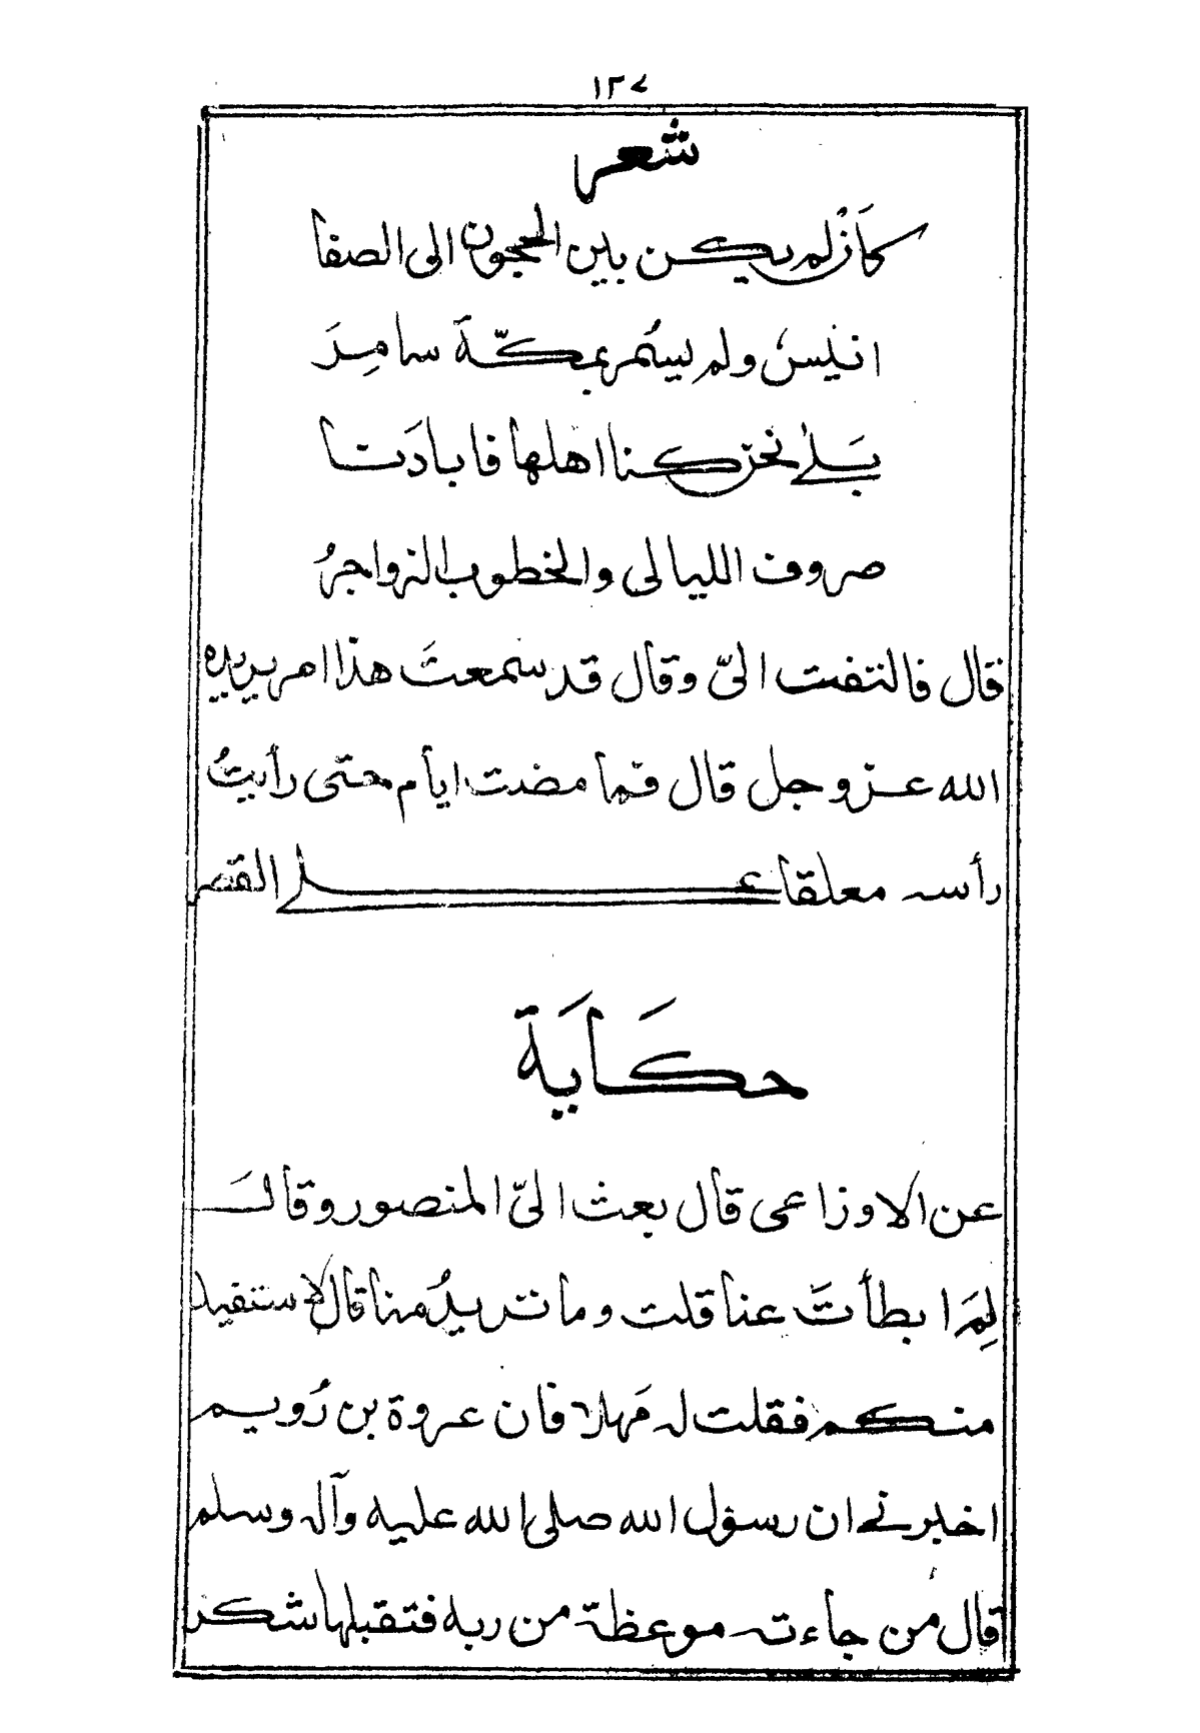 ١٣٧
شعر
كأَنْ لم يكن بين الحجون الى الصفا
انيسٌ ولم يسمُر بمكّةَ سامِرَ
بَلےٰ نحن كنا اهلها فابادَتنا
صروف الليالى والخطوب الزواجرُ
قال فالتفت الىّ وقال قد سمعتَ هذا امر يريده
الله عز وجل قال فما مضت ايام حتى رأيتُ
رأسه معلقا علے القصر
حكَايَة
عن الاوزاعى قال بعث الىّ المنصور وقالَ
لِمَ ابطأتَ عنا قلت وما تريدُ منا قال لاستفيد
منكم فقلت له مَهلا فان عروة بن رُويم
اخبرنے ان رسول الله صلى الله عليه وآله وسلم
قال من جاءته موعظة من ربه فتقبلها شكر